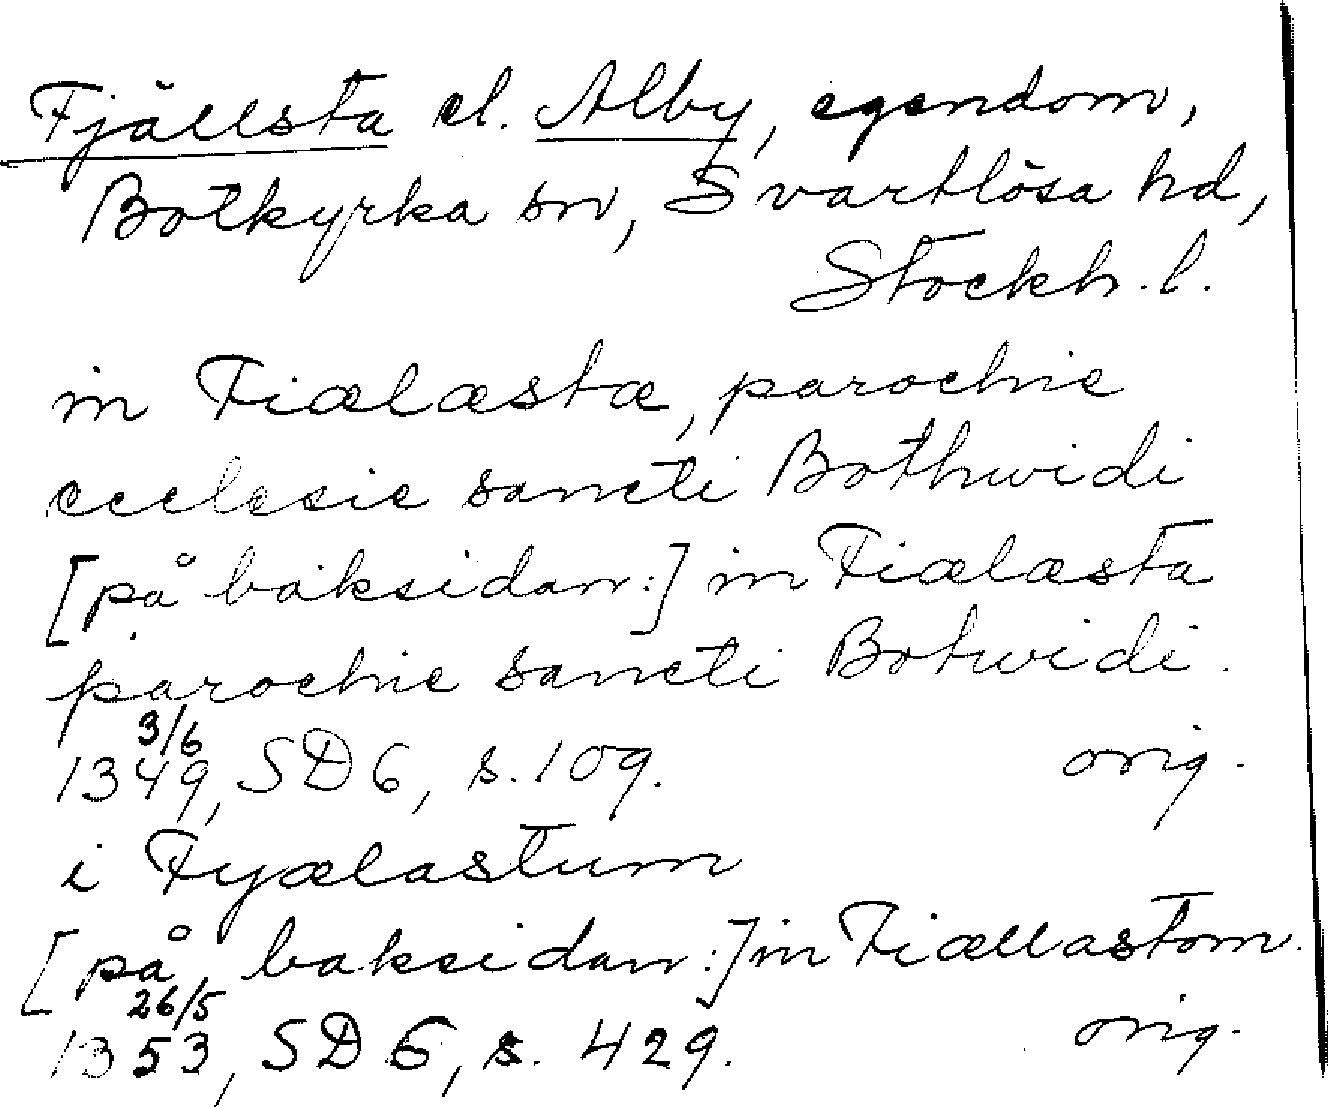 Fjällsta el. Alby, egendom,
Botkyrka sn, Svartlösa hd,
Stockh. l.
in Fiælæstæ, parochie
ecclesie sancti Bothwidi
[på baksidan:] in Fiælæsta
parochie sancti Botwidi.
3/6
1349, SD 6, s. 109. orig.
i Fyælastum
[på baksidan:] in Fiællastom.
26/5
1353, SD 6, s. 429. orig.